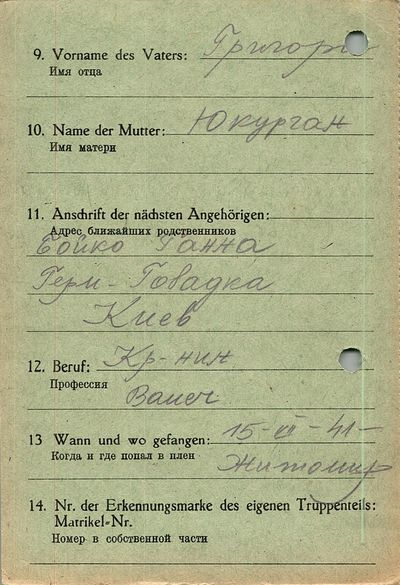 9. Vorname des Vaters: Григори
Имя отца
10. Name der Mutter: Юкурган
Имя матери
11. Anschrift der nächsten Angehörigen:
Адрес ближайших родственников
Бойко Ганна
Киев
12. Beruf: Кр-нин
Профессия
13 Wann und wo gefangen: 15-VII-41-
Когда и где попал в плен
Житомир
14. Nr. der Erkennungsmarke des eigenen Truppenteils:
Matrikel-Nr.
Номер в собственной части